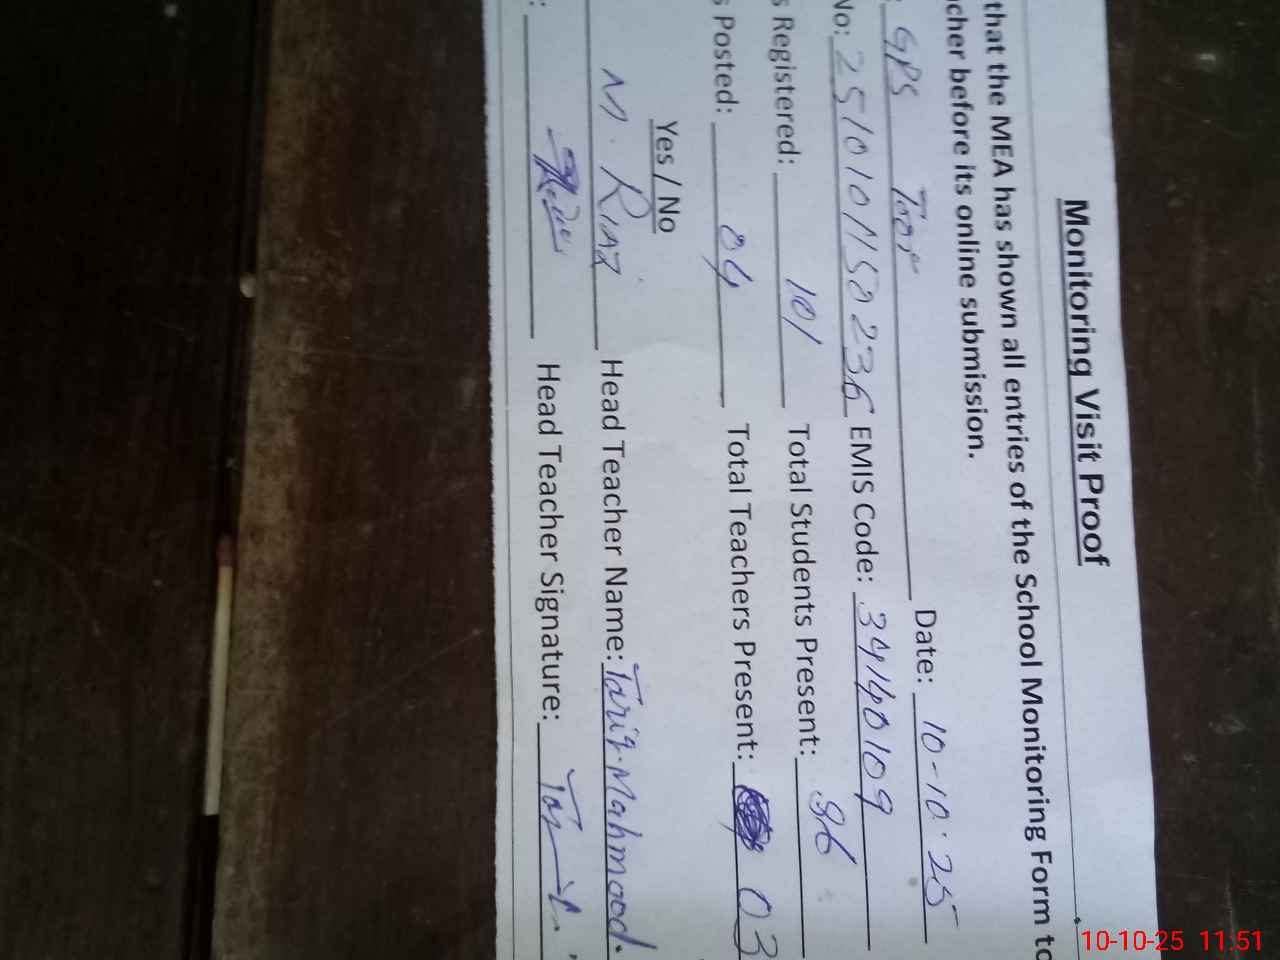 Monitoring Visit Proof
that the MEA has shown all entries of the School Monitoring Form to
cher before its online submission.
: GPS Toor Date: 10-10-25
No: 2510101150236 EMIS Code: 34140109
s Registered: 101 Total Students Present: 86
s Posted: 04 Total Teachers Present: 03
Yes / No
M. Riaz Head Teacher Name: Tariq Mahmood.
: Head Teacher Signature:
10-10-25 11:51